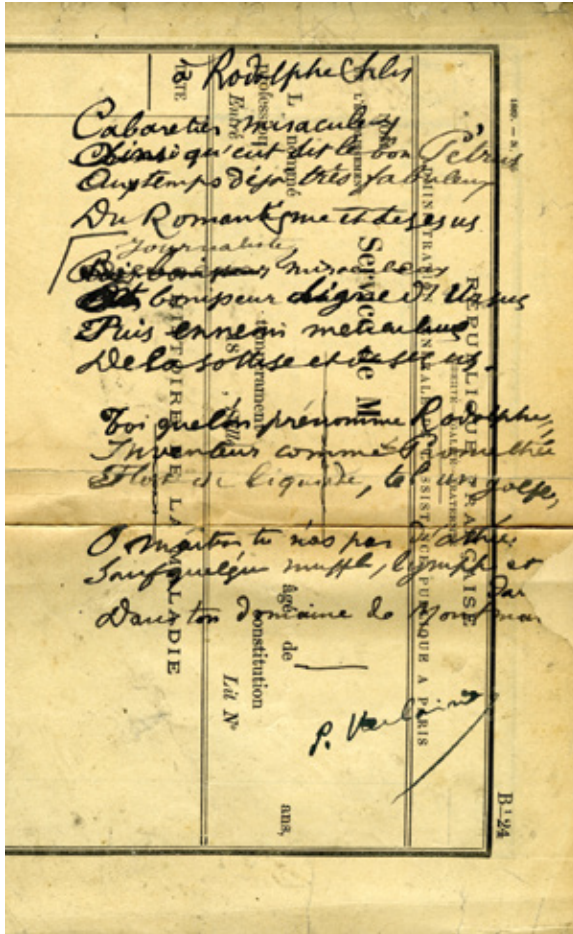 à Rodolphe Salis
Cabaretier miraculeux
Ainsi qu'eut dit le bon Pétrus
Aux temps déjà très fabuleux
Du Romantisme et de ses us
Journaliste
miraculeux
bonipeur digne d'Ursus
Puis ennemi méticuleux
De la sottise et de ses us.
Toi que l'on prénomme Rodolphe,
Inventeur comme Prométhée
Flot de liquide, tel un golfe,
O maître tu n'as pas d'athée
Sauf quelque muffle, lymphe et
Dans ton domaine de Montmar
P. Verlaine
RÉPUBLIQUE FRANÇAISE
LIBERTÉ ÉGALITÉ FRATERNITÉ
ADMINISTRATION GÉNÉRALE DE L'ASSISTANCE PUBLIQUE A PARIS
Service de M
L nommé
âge de ans,
Professeur
tempérament constitution
Entré Salle Lit No
DATE
DE LA MALADIE
B 1 24